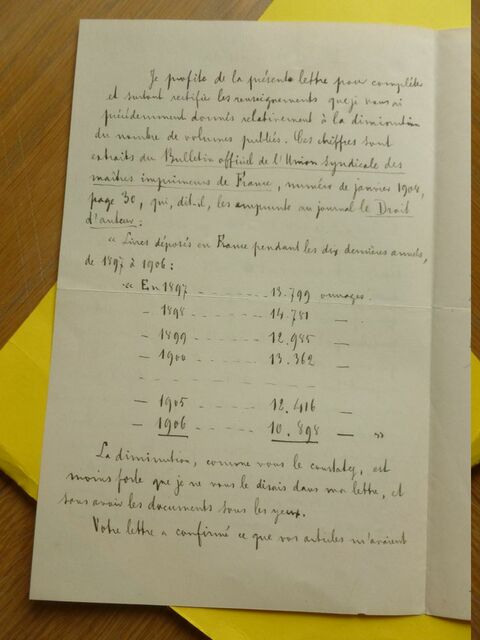 Je profite de la présente lettre pour compléter
et surtout rectifier les renseignements que je vous ai
précédemment donnés relativement à la diminution
du nombre de volumes publiés. Ces chiffres sont
extraits du Bulletin officiel de l'Union syndicale des
maîtres imprimeurs de France, numéro de janvier 1908,
page 30, qui, dit-il, les emprunte au journal le Droit
d'auteur :
« Livres déposés en France pendant les dix dernières années,
de 1897 à 1906 :
« En 1897 - - - - - - - 13.799 ouvrages.
— 1898 - - - - - - 14.781 —
— 1899 - - - - - - 12.985 —
— 1900 - - - - - - 13.362 —
- - - - - - - - - - - - - - -
— 1905 - - - - - - 12.416 —
— 1906 - - - - - - 10.898 — »
La diminution, comme vous le constatez, est
moins forte que je ne vous le disais dans ma lettre, et
sans avoir les documents sous les yeux.
Votre lettre a confirmé ce que vos articles m'avaient